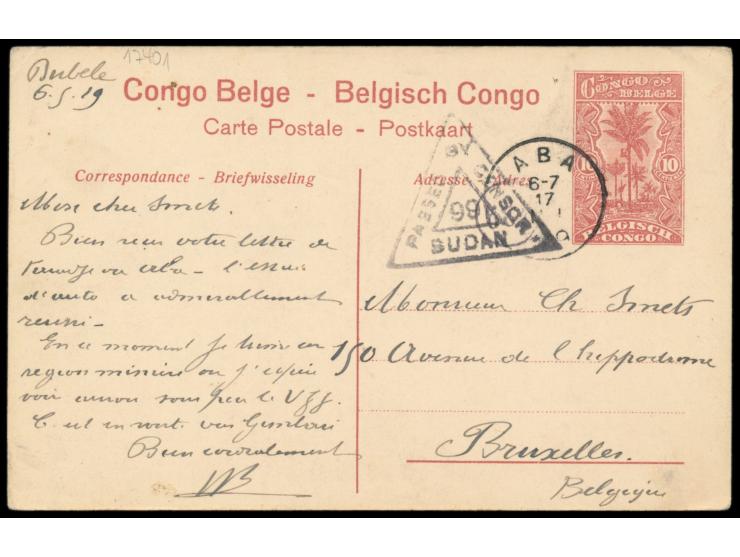 17401
6.5.19
Congo Belge - Belgisch Congo
Carte Postale - Postkaart
CONGO BELGE
10 10
BELGISCH CONGO
ABA
6-7
17
PASSED BY CENSOR
SUDAN
Correspondance - Briefwisseling
Adresse - Adres
Mon cher Smets.
Bien reçu votre lettre de
aba - l'essai
d'auto a admirablement
reussi -
En ce moment je suis en
region miniere ou j'espère
voir
C. est en route
Bien cordialement
Monsieur Ch Smets
150 Avenue de l'hippodrome
Bruxelles.
Belgique